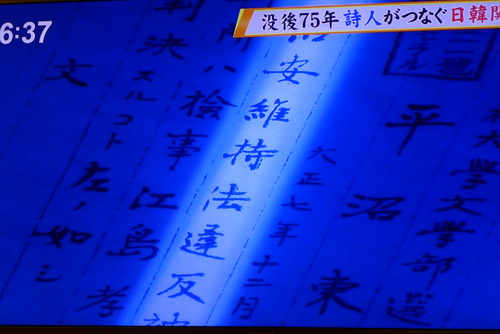 6:37
没後75年 詩人がつなぐ日韓関
大学文学部選
平沼東
大正七年十二月
安維持法違反
所ハ検事江島孝
判決スルコト左ノ如シ
文